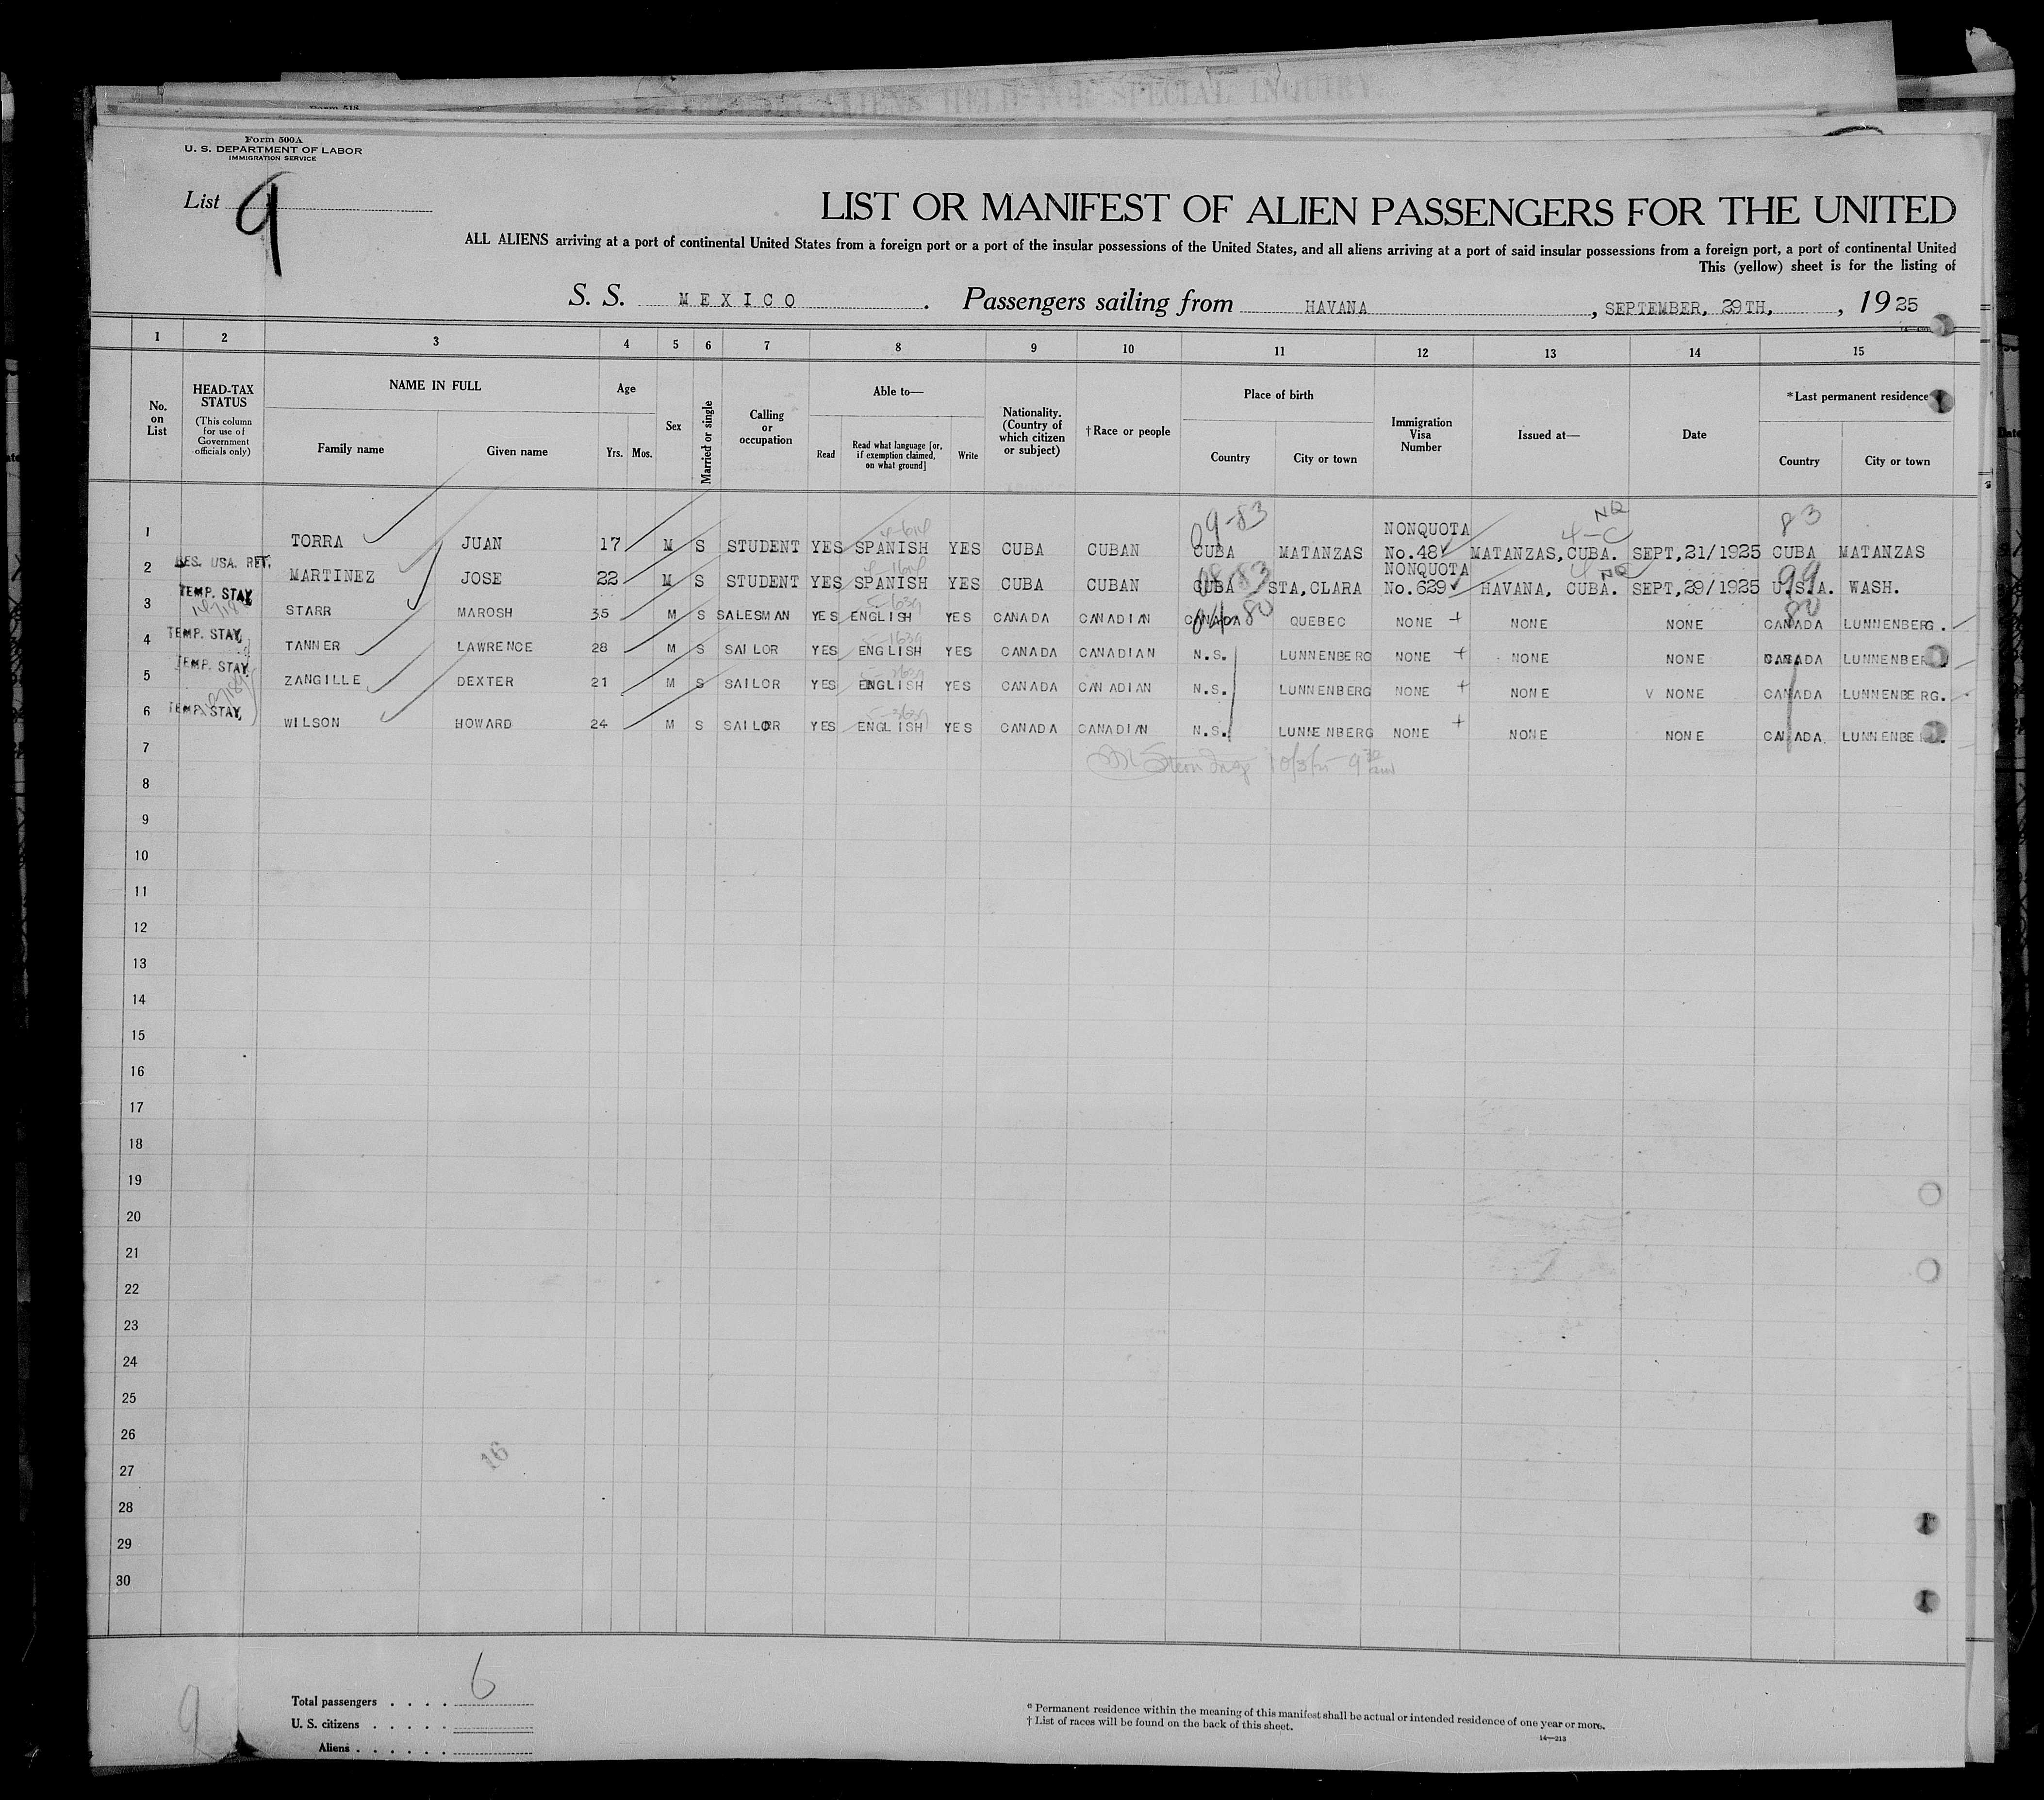 ALIENS HELD FOR SPECIAL INQUIRY
Form 518
Form 500A
U. S. DEPARTMENT OF LABOR
IMMIGRATION SERVICE
List 9
LIST OR MANIFEST OF ALIEN PASSENGERS FOR THE UNITED
ALL ALIENS arriving at a port of continental United States from a foreign port or a port of the insular possessions of the United States, and all aliens arriving at a port of said insular possessions from a foreign port, a port of continental United
This (yellow) sheet is for the listing of
S. S. MEXICO . Passengers sailing from HAVANA , SEPTEMBER, 29TH, , 1925
1 2 3 4 5 6 7 8 9 10 11 12 13 14 15
No. on List
HEAD-TAX STATUS (This column for use of Government officials only)
NAME IN FULL
Family name Given name
Age
Yrs. Mos.
Sex
Married or single
Calling or occupation
Able to—
Read Read what language [or, if exemption claimed, on what ground] Write
Nationality. (Country of which citizen or subject)
†Race or people
Place of birth
Country City or town
Immigration Visa Number
Issued at—
Date
*Last permanent residence
Country City or town
09-83 NQ 4-C 83
NONQUOTA
1 TORRA JUAN 17 M S STUDENT YES SPANISH YES CUBA CUBAN CUBA MATANZAS No.48 MATANZAS, CUBA. SEPT,21/1925 CUBA MATANZAS
NONQUOTA
2 RES. USA. RET. MARTINEZ JOSE 22 M S STUDENT YES SPANISH YES CUBA CUBAN CUBA STA,CLARA No.629 HAVANA, CUBA. SEPT,29/1925 U.S.A. WASH.
3 TEMP. STAY STARR MAROSH 35 M S SALESMAN YES ENGLISH YES CANADA CANADIAN CANADA QUEBEC NONE + NONE NONE CANADA LUNNENBERG.
4 TEMP. STAY, TANNER LAWRENCE 28 M S SAILOR YES ENGLISH YES CANADA CANADIAN N.S. LUNNENBERG NONE + NONE NONE CANADA LUNNENBER
5 TEMP. STAY, ZANGILLE DEXTER 21 M S SAILOR YES ENGLISH YES CANADA CANADIAN N.S. LUNNENBERG NONE + NONE V NONE CANADA LUNNENBERG.
6 TEMP. STAY, WILSON HOWARD 24 M S SAILOR YES ENGLISH YES CANADA CANADIAN N.S. LUNNENBERG NONE + NONE NONE CANADA. LUNNENBE
7
10/3/25 9 30 am
8
9
10
11
12
13
14
15
16
17
18
19
20
21
22
23
24
25
26
16
27
28
29
30
9
Total passengers . . . . 6
U. S. citizens . . . . .
Aliens . . . . . .
* Permanent residence within the meaning of this manifest shall be actual or intended residence of one year or more.
† List of races will be found on the back of this sheet.
14—213